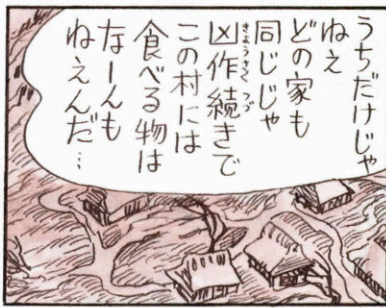 うちだけじゃ
ねえ
どの家も
同じじゃ
凶作続きで
この村には
食べる物は
なーんも
ねえんだ…